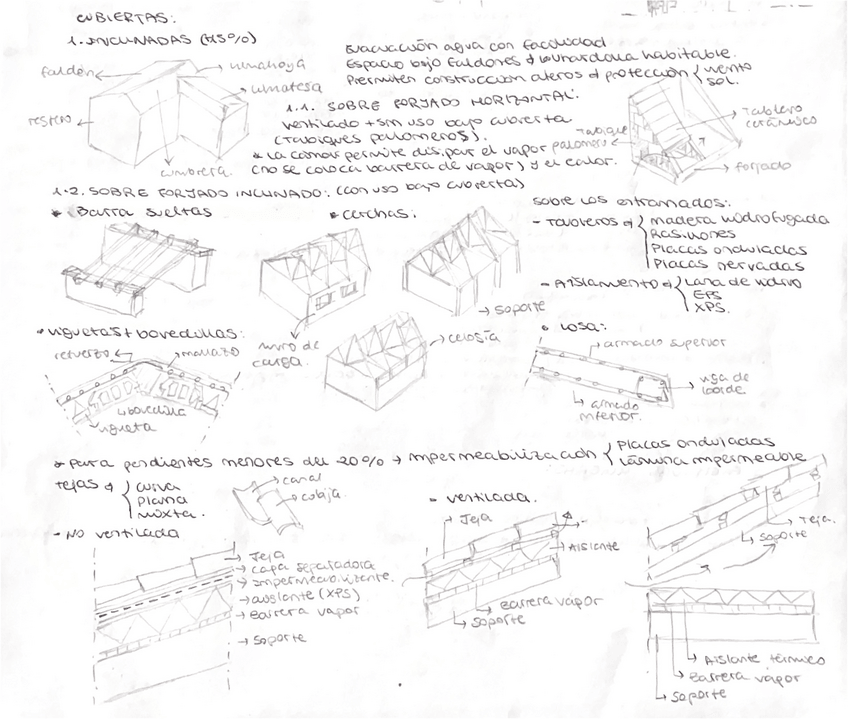 CUBIERTAS:
1. INCLINADAS (≥15%)
faldón
limahoya
limatesa
cumbrera
Evacuación agua con facilidad
Espacio bajo faldones buhardilla habitable.
Permiten construcción aleros protección { viento
sol.
1.1. SOBRE FORJADO HORIZONTAL.
ventilado + sin uso bajo cubierta
(Tabiques palomeros).
* La cámara permite disipar el vapor
(no se coloca barrera de vapor) y el calor.
Tabique
palomero
Tablero
cerámico
forjado
1.2. SOBRE FORJADO INCLINADO: (con uso bajo cubierta)
* Barra sueltas
* Cerchas:
muro de
carga.
soporte
celosía
Sobre los entramados:
- Tableros { madera hidrofugada
Placas onduladas
Placas nervadas
- Aislamiento { Lana de vidrio
EPS
XPS.
• Viguetas + bovedillas:
refuerzo
mallazo
bovedilla
vigueta
• Losa:
armado superior
armado
inferior.
viga de
borde.
* Para pendientes menores del 20% → impermeabilización { Placas onduladas
lámina impermeable
Tejas { curva
plana
mixta.
canal
cobija
- No ventilada
Teja
capa separadora
impermeabilizante.
aislante (XPS)
Barrera vapor
Soporte
- ventilada.
Teja
Aislante
Barrera vapor
Soporte
Teja.
Soporte
Aislante térmico
Barrera vapor
Soporte